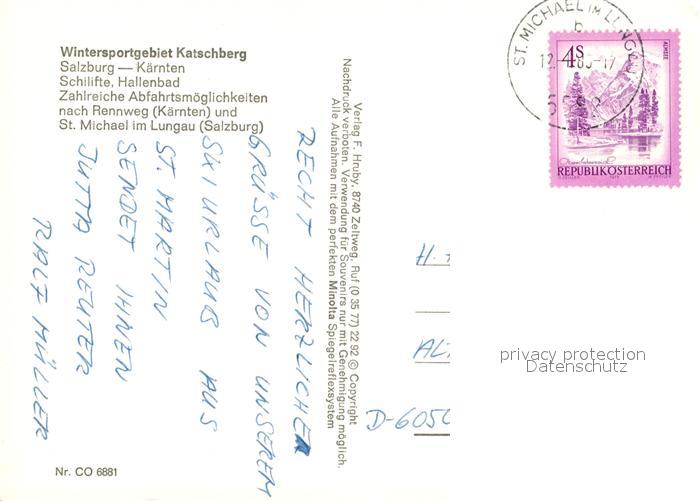 Wintersportgebiet Katschberg
Salzburg — Kärnten
Schilifte, Hallenbad
Zahlreiche Abfahrtsmöglichkeiten
nach Rennweg (Kärnten) und
St. Michael im Lungau (Salzburg)
RECHT HERZLICHE
GRÜSSE VON UNSEREM
SKIURLAUB AUS
ST. MARTIN
SENDET IHNEN
JUTTA REUTER
RALF MÜLLER
Nr. CO 6881
Verlag F. Hruby, 8740 Zeltweg, Ruf (0 35 77) 22 92 © Copyright
Nachdruck verboten. Verwendung für Souvenirs nur mit Genehmigung möglich.
Alle Aufnahmen mit dem perfekten Minolta Spiegelreflexsystem
ST. MICHAEL IM LUNGAU
b
4S
ALMSEE
REPUBLIK ÖSTERREICH
H.
D-6050
privacy protection
Datenschutz